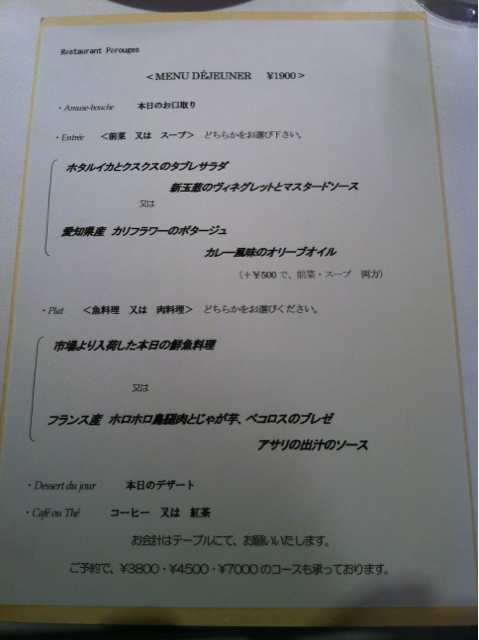 Restaurant Porouges
<MENU DÉJEUNER ¥1900>
・Amuse-bouche 本日のお口取り
・Entrée <前菜 又は スープ> どちらかをお選び下さい。
ホタルイカとクスクスのタブレサラダ
新玉葱のヴィネグレットとマスタードソース
又は
愛知県産 カリフラワーのポタージュ
カレー風味のオリーブオイル
(＋¥500で、前菜・スープ 両方)
・Plat <魚料理 又は 肉料理> どちらかをお選びください。
市場より入荷した本日の鮮魚料理
又は
フランス産 ホロホロ鳥腿肉とじゃが芋、ペコロスのブレゼ
アサリの出汁のソース
・Dessert du jour 本日のデザート
・Café ou Thé コーヒー 又は 紅茶
お会計はテーブルにて、お願いいたします。
ご予約で、¥3800・¥4500・¥7000のコースも承っております。